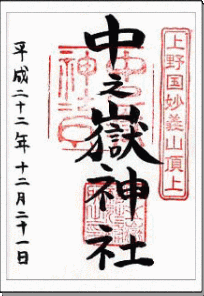 上野国妙義山頂上
中之嶽神社
平成二十二年十二月二十一日